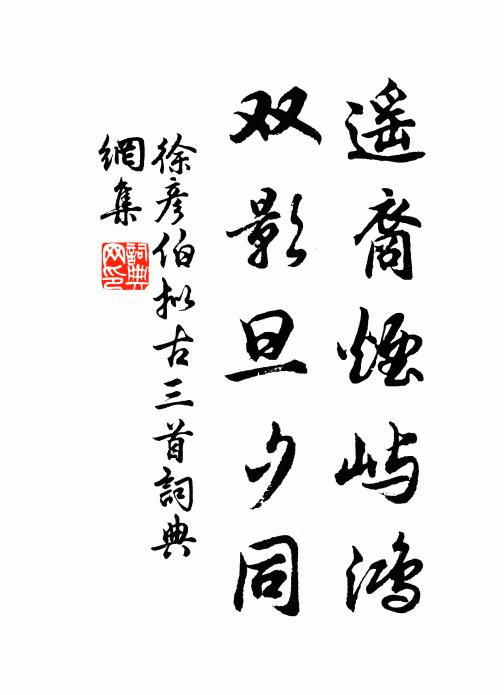 遥裔煙屿鸿
双影旦夕同
徐彦伯拟古三首詞典
網集
詞典網印